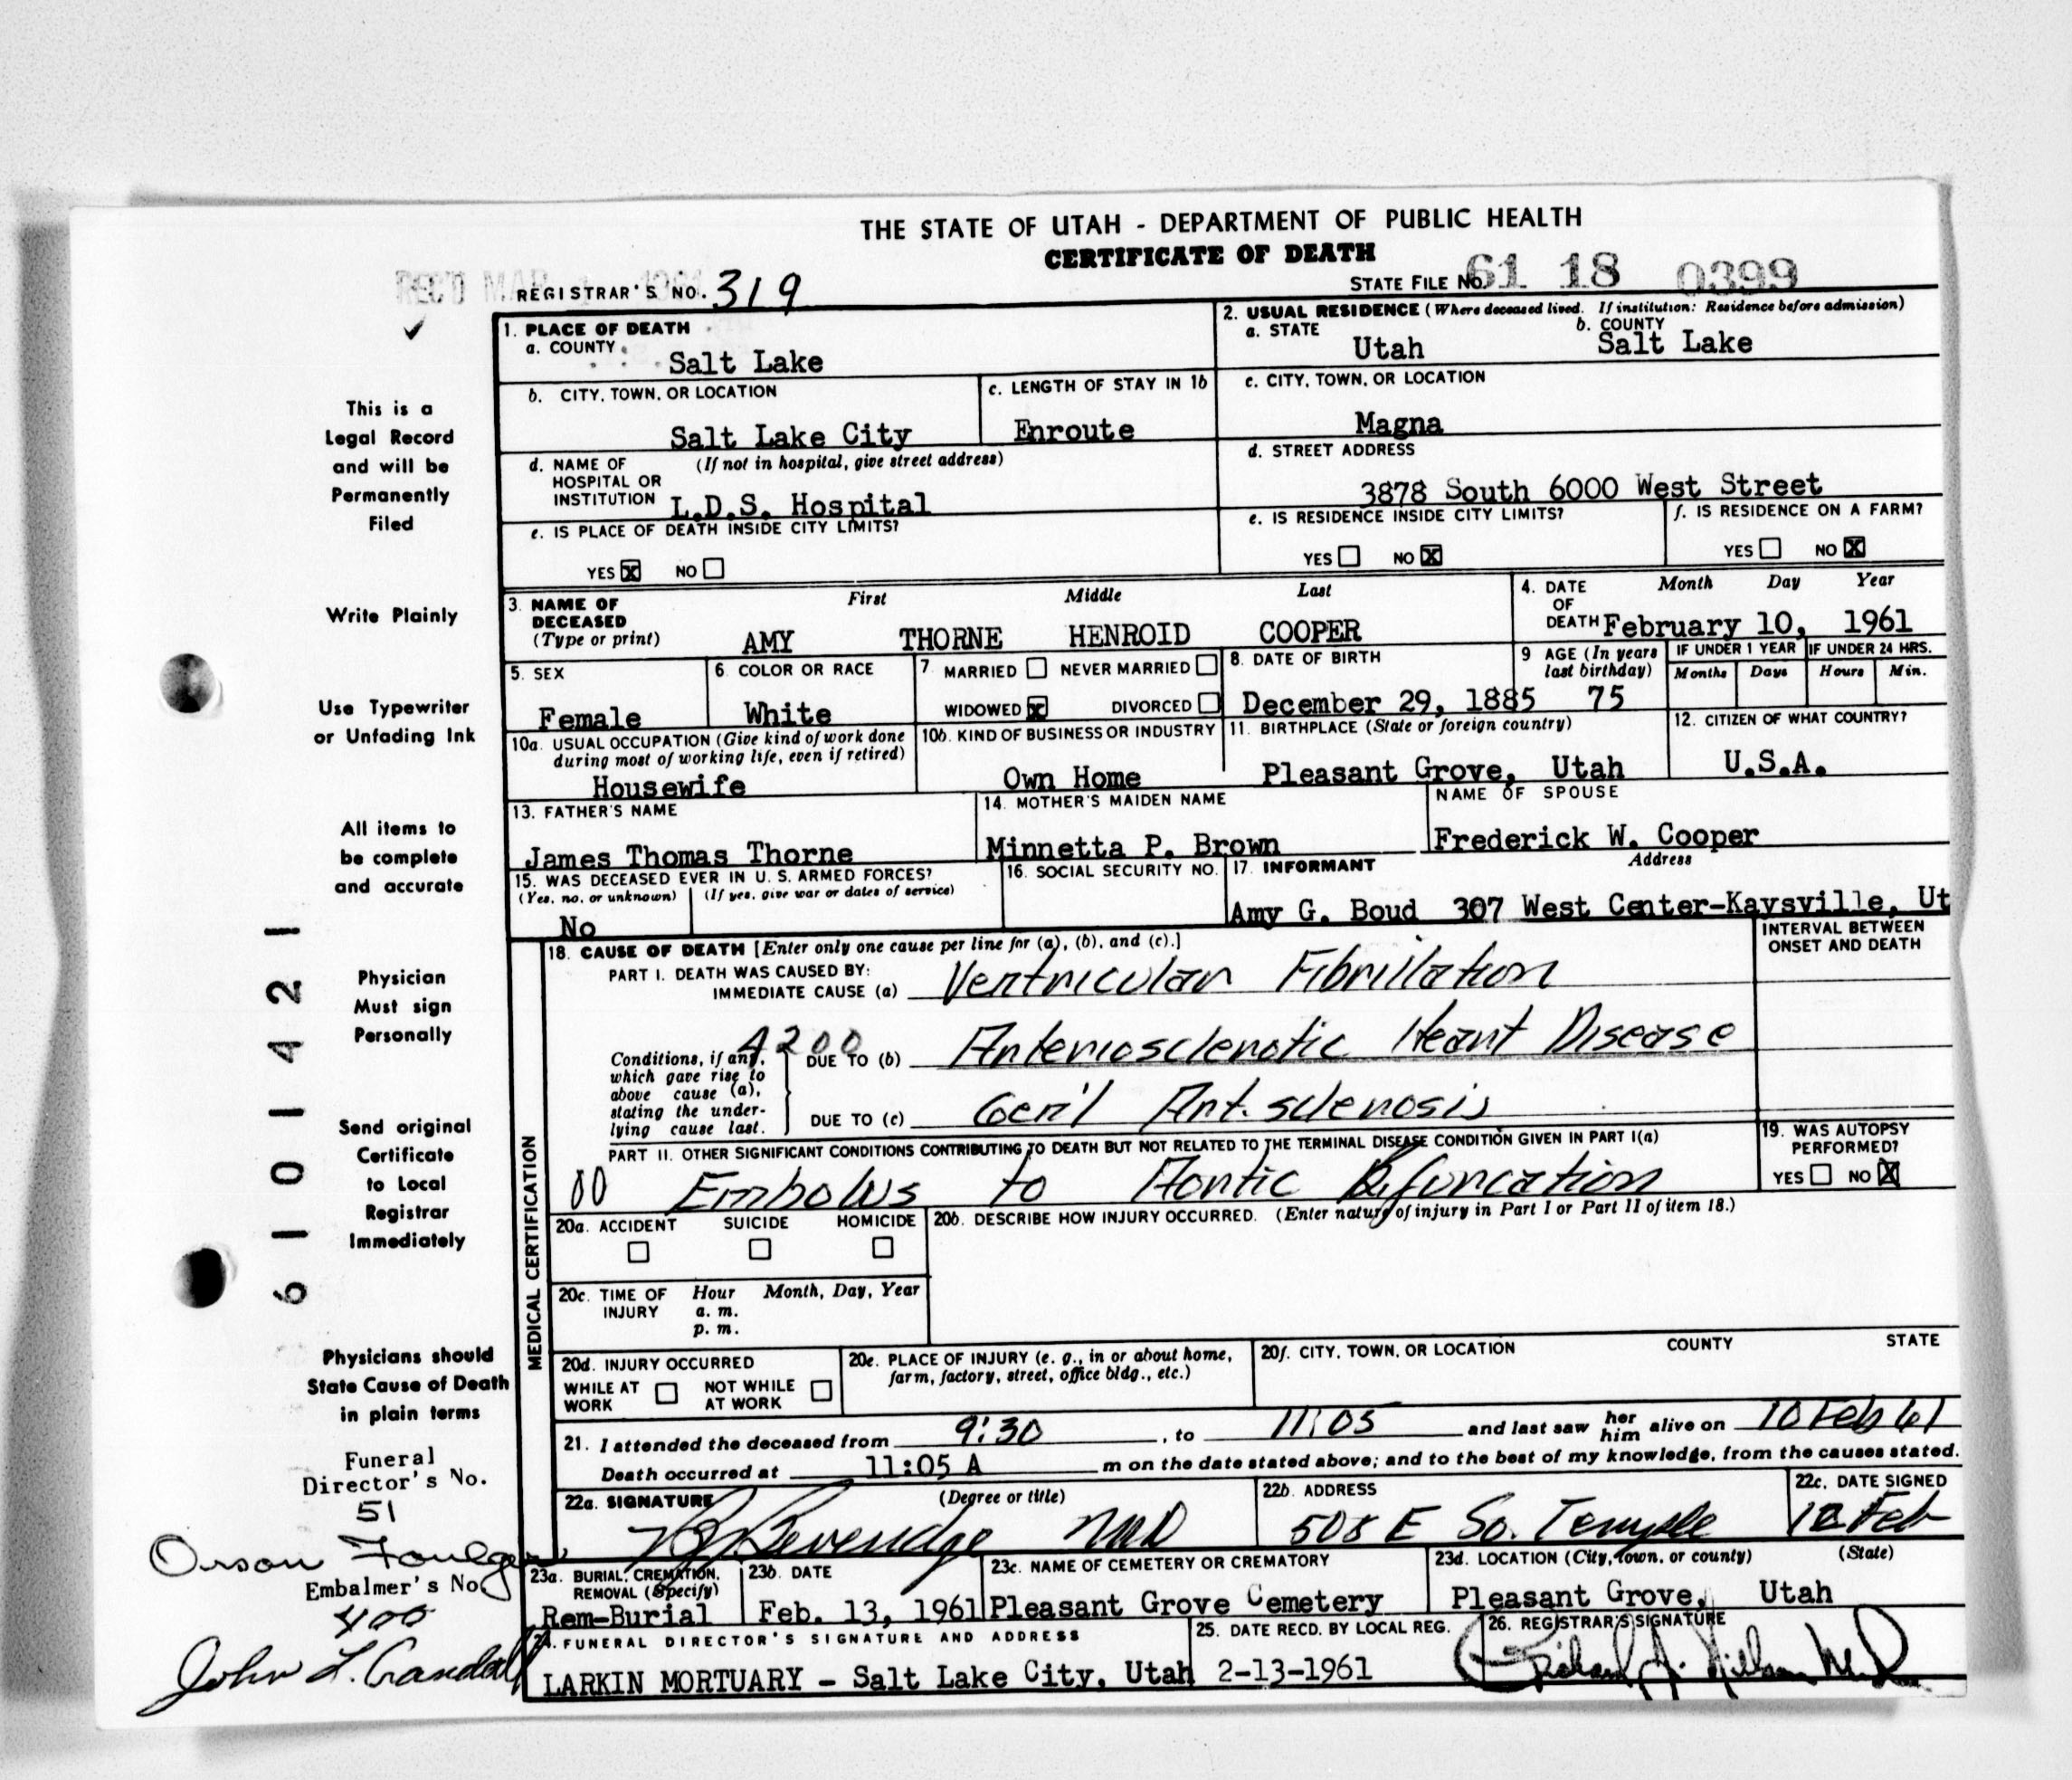 THE STATE OF UTAH - DEPARTMENT OF PUBLIC HEALTH
CERTIFICATE OF DEATH
REC'D MAR
REGISTRAR'S NO. 319
STATE FILE NO. 61 18 0399
✓
This is a
Legal Record
and will be
Permanently
Filed
Write Plainly
Use Typewriter
or Unfading Ink
All items to
be complete
and accurate
Physician
Must sign
Personally
Send original
Certificate
to Local
Registrar
Immediately
Physicians should
State Cause of Death
in plain terms
Funeral
Director's No.
51
Orson Foulger
Embalmer's No.
400
John L. Crandall
6101421
1. PLACE OF DEATH
a. COUNTY
Salt Lake
b. CITY, TOWN, OR LOCATION
Salt Lake City
c. LENGTH OF STAY IN 1b
Enroute
d. NAME OF (If not in hospital, give street address)
HOSPITAL OR
INSTITUTION L.D.S. Hospital
e. IS PLACE OF DEATH INSIDE CITY LIMITS?
YES X NO
2. USUAL RESIDENCE (Where deceased lived. If institution: Residence before admission)
a. STATE
Utah
b. COUNTY
Salt Lake
c. CITY, TOWN, OR LOCATION
Magna
d. STREET ADDRESS
3878 South 6000 West Street
e. IS RESIDENCE INSIDE CITY LIMITS?
YES NO X
f. IS RESIDENCE ON A FARM?
YES NO X
3. NAME OF DECEASED (Type or print)
First Middle Last
AMY THORNE HENROID COOPER
4. DATE OF DEATH
Month Day Year
February 10, 1961
5. SEX
Female
6. COLOR OR RACE
White
7. MARRIED NEVER MARRIED
WIDOWED X DIVORCED
8. DATE OF BIRTH
December 29, 1885
9 AGE (In years last birthday)
75
IF UNDER 1 YEAR
Months Days
IF UNDER 24 HRS.
Hours Min.
10a. USUAL OCCUPATION (Give kind of work done
during most of working life, even if retired)
Housewife
10b. KIND OF BUSINESS OR INDUSTRY
Own Home
11. BIRTHPLACE (State or foreign country)
Pleasant Grove, Utah
12. CITIZEN OF WHAT COUNTRY?
U.S.A.
13. FATHER'S NAME
James Thomas Thorne
14. MOTHER'S MAIDEN NAME
Minnetta P. Brown
NAME OF SPOUSE
Frederick W. Cooper
15. WAS DECEASED EVER IN U. S. ARMED FORCES?
(Yes, no, or unknown) (If yes, give war or dates of service)
No
16. SOCIAL SECURITY NO.
17. INFORMANT Address
Amy G. Boud 307 West Center-Kaysville, Ut
18. CAUSE OF DEATH [Enter only one cause per line for (a), (b), and (c).]
INTERVAL BETWEEN
ONSET AND DEATH
PART I. DEATH WAS CAUSED BY:
IMMEDIATE CAUSE (a) Ventricular Fibrillation
4200
Conditions, if any,
which gave rise to
above cause (a),
stating the under-
lying cause last.
DUE TO (b) Arteriosclerotic Heart Disease
DUE TO (c) Gen'l Art. sclerosis
PART II. OTHER SIGNIFICANT CONDITIONS CONTRIBUTING TO DEATH BUT NOT RELATED TO THE TERMINAL DISEASE CONDITION GIVEN IN PART I(a)
00 Embolus to Aortic Bifurcation
19. WAS AUTOPSY
PERFORMED?
YES NO X
MEDICAL CERTIFICATION
20a. ACCIDENT SUICIDE HOMICIDE
20b. DESCRIBE HOW INJURY OCCURRED. (Enter nature of injury in Part I or Part II of item 18.)
20c. TIME OF INJURY
Hour Month, Day, Year
a. m.
p. m.
20d. INJURY OCCURRED
WHILE AT WORK NOT WHILE AT WORK
20e. PLACE OF INJURY (e. g., in or about home,
farm, factory, street, office bldg., etc.)
20f. CITY, TOWN, OR LOCATION COUNTY STATE
21. I attended the deceased from 9:30, to 11:05 and last saw her him alive on 10 Feb 61
Death occurred at 11:05 A m on the date stated above; and to the best of my knowledge, from the causes stated.
22a. SIGNATURE (Degree or title)
Beveridge MD
22b. ADDRESS
508 E So. Temple
22c. DATE SIGNED
12 Feb
23a. BURIAL, CREMATION,
REMOVAL (Specify)
Rem-Burial
23b. DATE
Feb. 13, 1961
23c. NAME OF CEMETERY OR CREMATORY
Pleasant Grove Cemetery
23d. LOCATION (City, town, or county) (State)
Pleasant Grove, Utah
24. FUNERAL DIRECTOR'S SIGNATURE AND ADDRESS
LARKIN MORTUARY - Salt Lake City, Utah
25. DATE RECD. BY LOCAL REG.
2-13-1961
26. REGISTRAR'S SIGNATURE